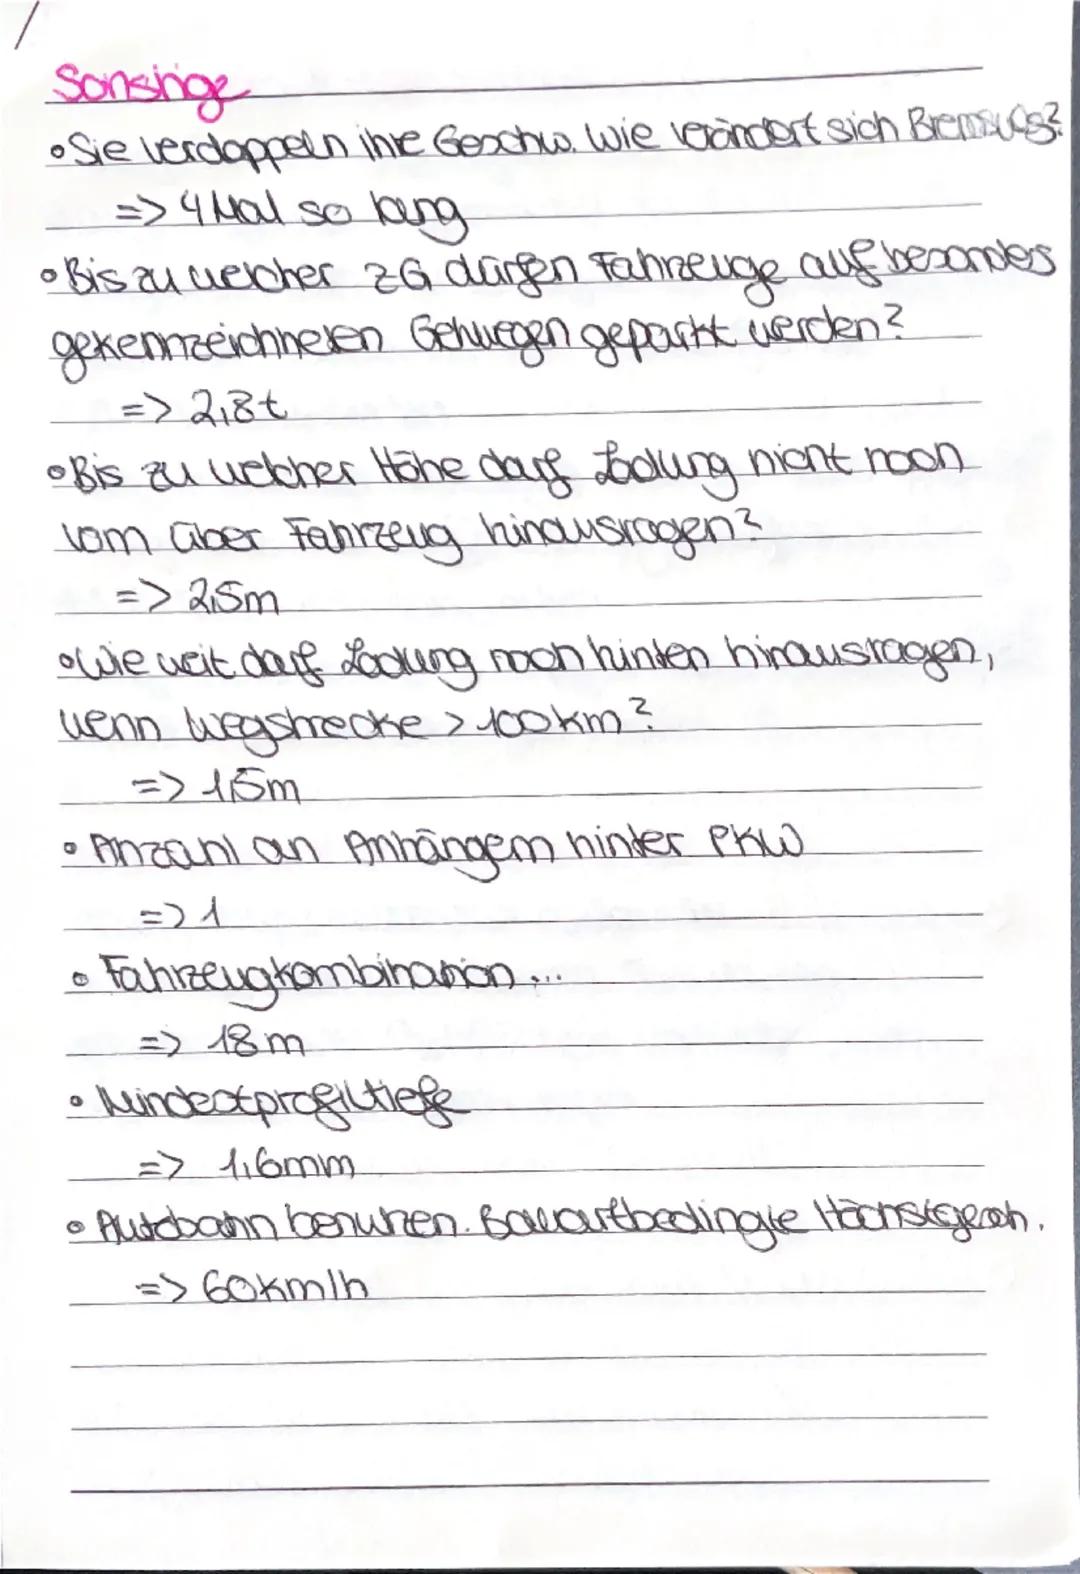 Sonstige
• Sie verdoppeln ihre Geschw. Wie verändert sich Bremsweg?
=> 4 Mal so lang
• Bis zu welcher zG dürfen Fahrzeuge auf besonders
gekennzeichneten Gehwegen geparkt werden?
=> 2,8t
• Bis zu welcher Höhe darf Ladung nicht nach
vorn über Fahrzeug hinausragen?
=> 2,5m
• Wie weit darf Ladung nach hinten hinausragen,
wenn Wegstrecke > 100km?
=> 1,5m
• Anzahl an Anhängern hinter PKW
=> 1
• Fahrzeugkombination...
=> 18m
• Mindestprofiltiefe
=> 1,6mm
• Autobahn benutzen. Bauartbedingte Höchstgesch.
=> 60km/h